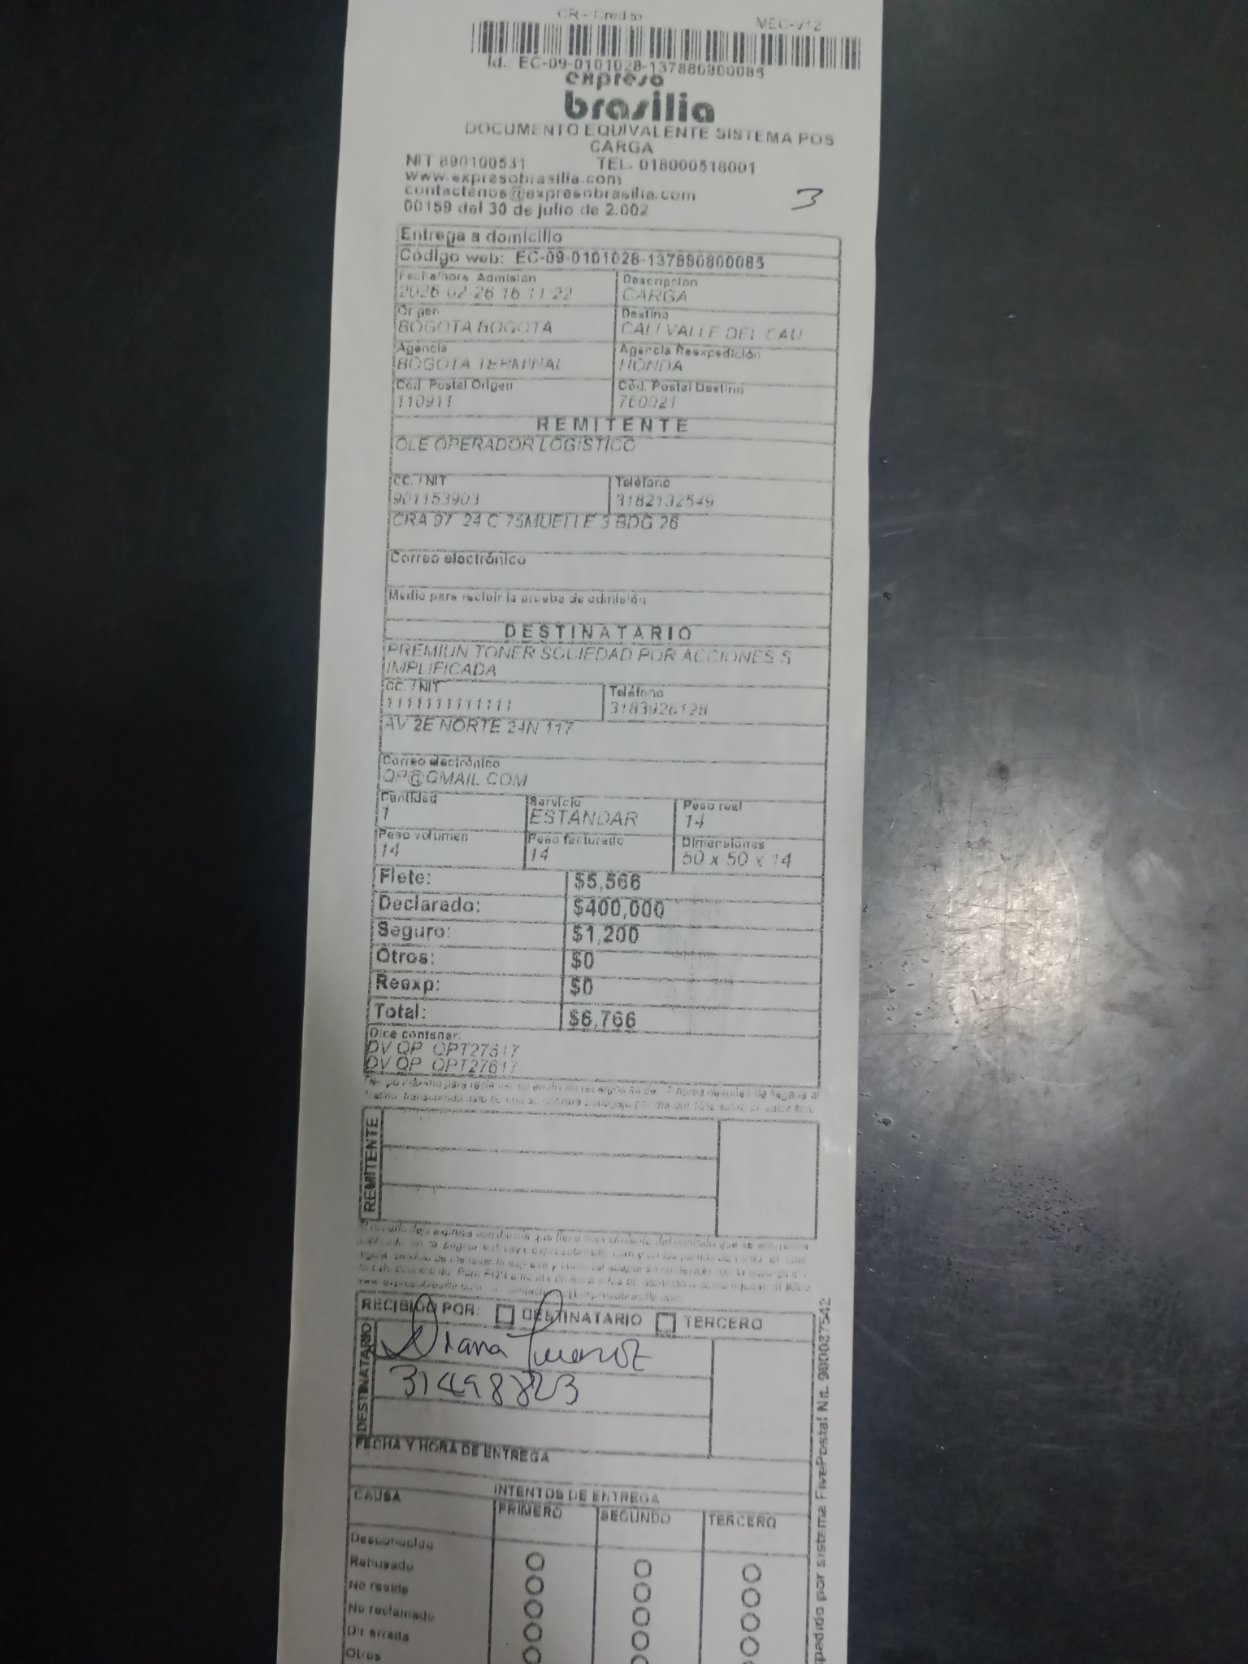 CR - Credito MEC-V12
Id.: EC-09-0101028-137880800085
expreso
brasilia
DOCUMENTO EQUIVALENTE SISTEMA POS
CARGA
NIT 890100531 TEL. 018000518001
www.expresobrasilia.com
contactenos@expresobrasilia.com
00159 del 30 de julio de 2.002
3
Entrega a domicilio
Código web: EC-09-0101028-137880800085
Fecha/hora Admisión Descripción
2026-02-26 16:11:22 CARGA
Origen Destino
BOGOTA BOGOTA CALI VALLE DEL CAU
Agencia Agencia Reexpedición
BOGOTA TERMINAL HONDA
Cód. Postal Origen Cód. Postal Destino
110911 760021
REMITENTE
OLE OPERADOR LOGISTICO
CC. / NIT Teléfono
901153903 3182132549
CRA 97 24 C 75MUELLE 3 BDG 26
Correo electrónico
Medio para recibir la prueba de admisión
DESTINATARIO
PREMIUN TONER SOCIEDAD POR ACCIONES S
IMPLIFICADA
CC. / NIT Teléfono
1111111111111 3183926128
AV 2E NORTE 24N 117
Correo electrónico
QP@GMAIL.COM
Cantidad Servicio Peso real
1 ESTANDAR 14
Peso volumen Peso facturado Dimensiones
14 14 50 x 50 x 14
Flete: $5,566
Declarado: $400,000
Seguro: $1,200
Otros: $0
Reexp: $0
Total: $6,766
Dice contener:
DV QP OPT27617
DV QP OPT27617
REMITENTE
RECIBIDO POR: DESTINATARIO TERCERO
DESTINATARIO
Diana
31498823
FECHA Y HORA DE ENTREGA
CAUSA INTENTOS DE ENTREGA
PRIMERO SEGUNDO TERCERO
Desconocido
Rehusado
No reside
No reclamado
Dir errada
Otros
pedido por sistema FivePostal Nit. 900087542